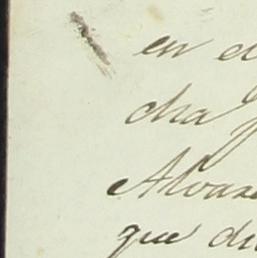 en el
cha
Alvare
que di